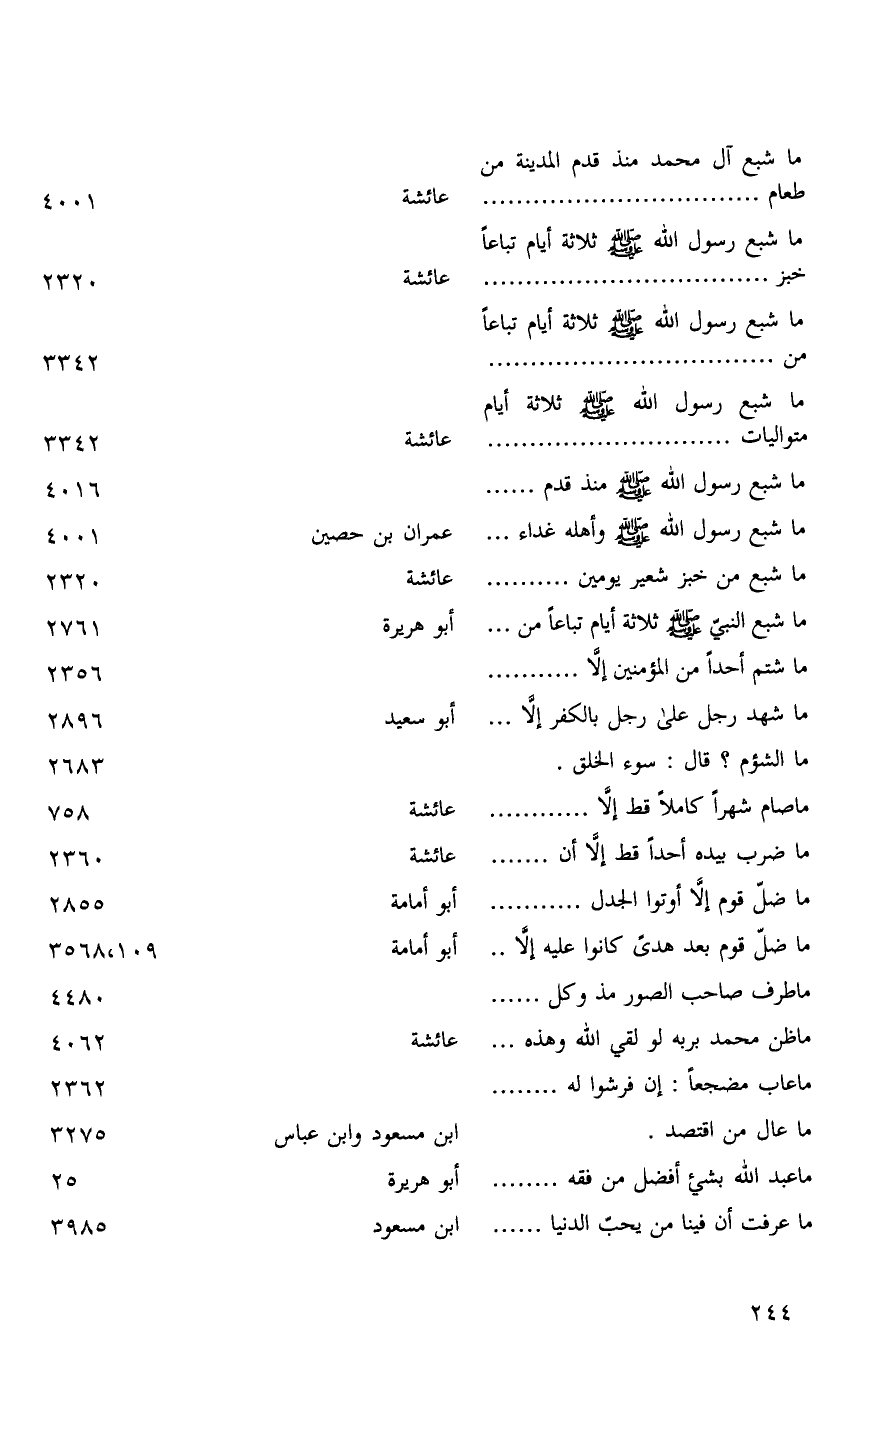 ما شبع آل محمد منذ قدم المدينة من
طعام ................................ عائشة ٤٠٠١
ما شبع رسول الله ﷺ ثلاثة أيام تباعاً
خبز ................................. عائشة ٢٣٢٠
ما شبع رسول الله ﷺ ثلاثة أيام تباعاً
من ................................. ٣٣٤٢
ما شبع رسول الله ﷺ ثلاثة أيام
متواليات ............................ عائشة ٣٣٤٢
ما شبع رسول الله ﷺ منذ قدم ...... ٤٠١٦
ما شبع رسول الله ﷺ وأهله غداء ... عمران بن حصين ٤٠٠١
ما شبع من خبز شعير يومين .......... عائشة ٢٣٢٠
ما شبع النبيّ ﷺ ثلاثة أيام تباعاً من ... أبو هريرة ٢٧٦١
ما شتم أحداً من المؤمنين إلَّا ........... ٢٣٥٦
ما شهد رجل علىٰ رجل بالكفر إلَّا ... أبو سعيد ٢٨٩٦
ما الشؤم ؟ قال : سوء الخلق . ٢٦٨٣
ماصام شهراً كاملاً قط إلَّا ............ عائشة ٧٥٨
ما ضرب بيده أحداً قط إلَّا أن ....... عائشة ٢٣٦٠
ما ضلّ قوم إلَّا أوتوا الجدل ........... أبو أمامة ٢٨٥٥
ما ضلّ قوم بعد هدىً كانوا عليه إلَّا .. أبو أمامة ٣٥٦٨،١٠٩
ماطرف صاحب الصور مذ وكل ...... ٤٤٨٠
ماظن محمد بربه لو لقي الله وهذه ... عائشة ٤٠٦٢
ماعاب مضجعاً : إن فرشوا له ........ ٢٣٦٢
ما عال من اقتصد . ابن مسعود وابن عباس ٣٢٧٥
ماعبد الله بشئ أفضل من فقه ........ أبو هريرة ٢٥
ما عرفت أن فينا من يحبّ الدنيا ...... ابن مسعود ٣٩٨٥
٢٤٤